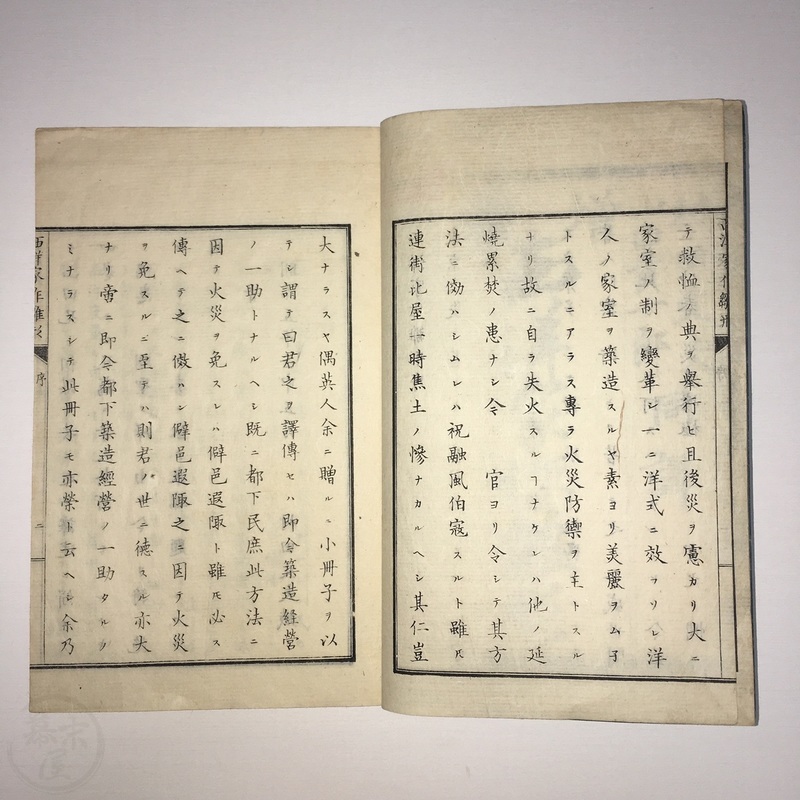 テ救恤ノ典ヲ舉行ヒ且後災ヲ慮カリ大ニ
家室ノ制ヲ變革シ一ニ洋式ニ效ヲリレ洋
人ノ家室ヲ築造スルヤ素ヨリ美麗ヲムネ
トスルニアラス專ラ火災防禦ヲ主トスル
ナリ故ニ自ラ失火スルヿナケレハ他ノ延
燒累焚ノ患ナシ今 官ヨリ令シテ其方
法ニ傚ハシムレハ祝融風伯寇スルト雖𪜈
連衖比屋一時焦土ノ慘ナカルヘシ其仁豈
大ナラスヤ偶英人余ニ贈ルニ小冊子ヲ以
テシ謂テ曰君之ヲ譯傳セハ即今築造経營
ノ一助トナルヘシ既ニ都下民庶此方法ニ
因テ火災ヲ免スレハ僻邑遐陬ト雖𪜈必ス
傳ヘテ之ニ傚ハン僻邑遐陬之ニ因テ火災
ヲ免スルニ至テハ則君ノ世ニ德スル亦大
ナリ啻ニ即今都下築造經營ノ一助タルノ
ミナラスシテ此冊子モ亦榮ト云ヘシ余乃
序
二